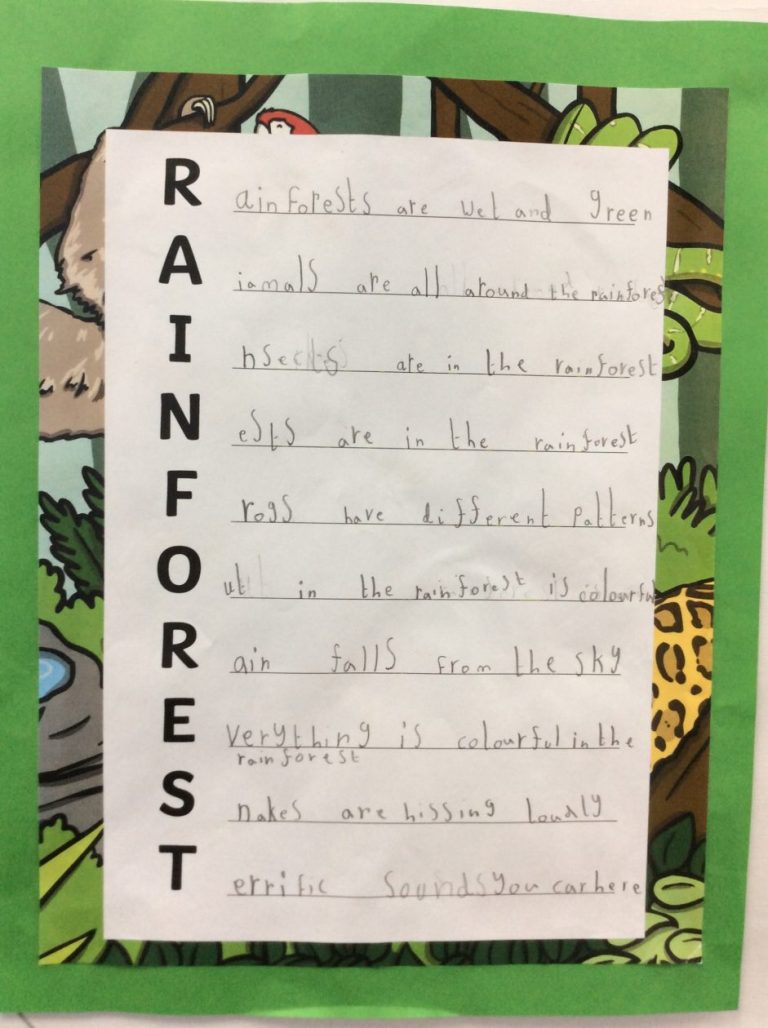 R ainforests are wet and green
A iamals are all around the rainforest
I nsects are in the rainforest
N ests are in the rainforest
F rogs have different patterns
O ut in the rainforest is colourful
R ain falls from the sky
E verything is colourful in the
rainforest
S nakes are hissing loudly
T errific sounds you can here